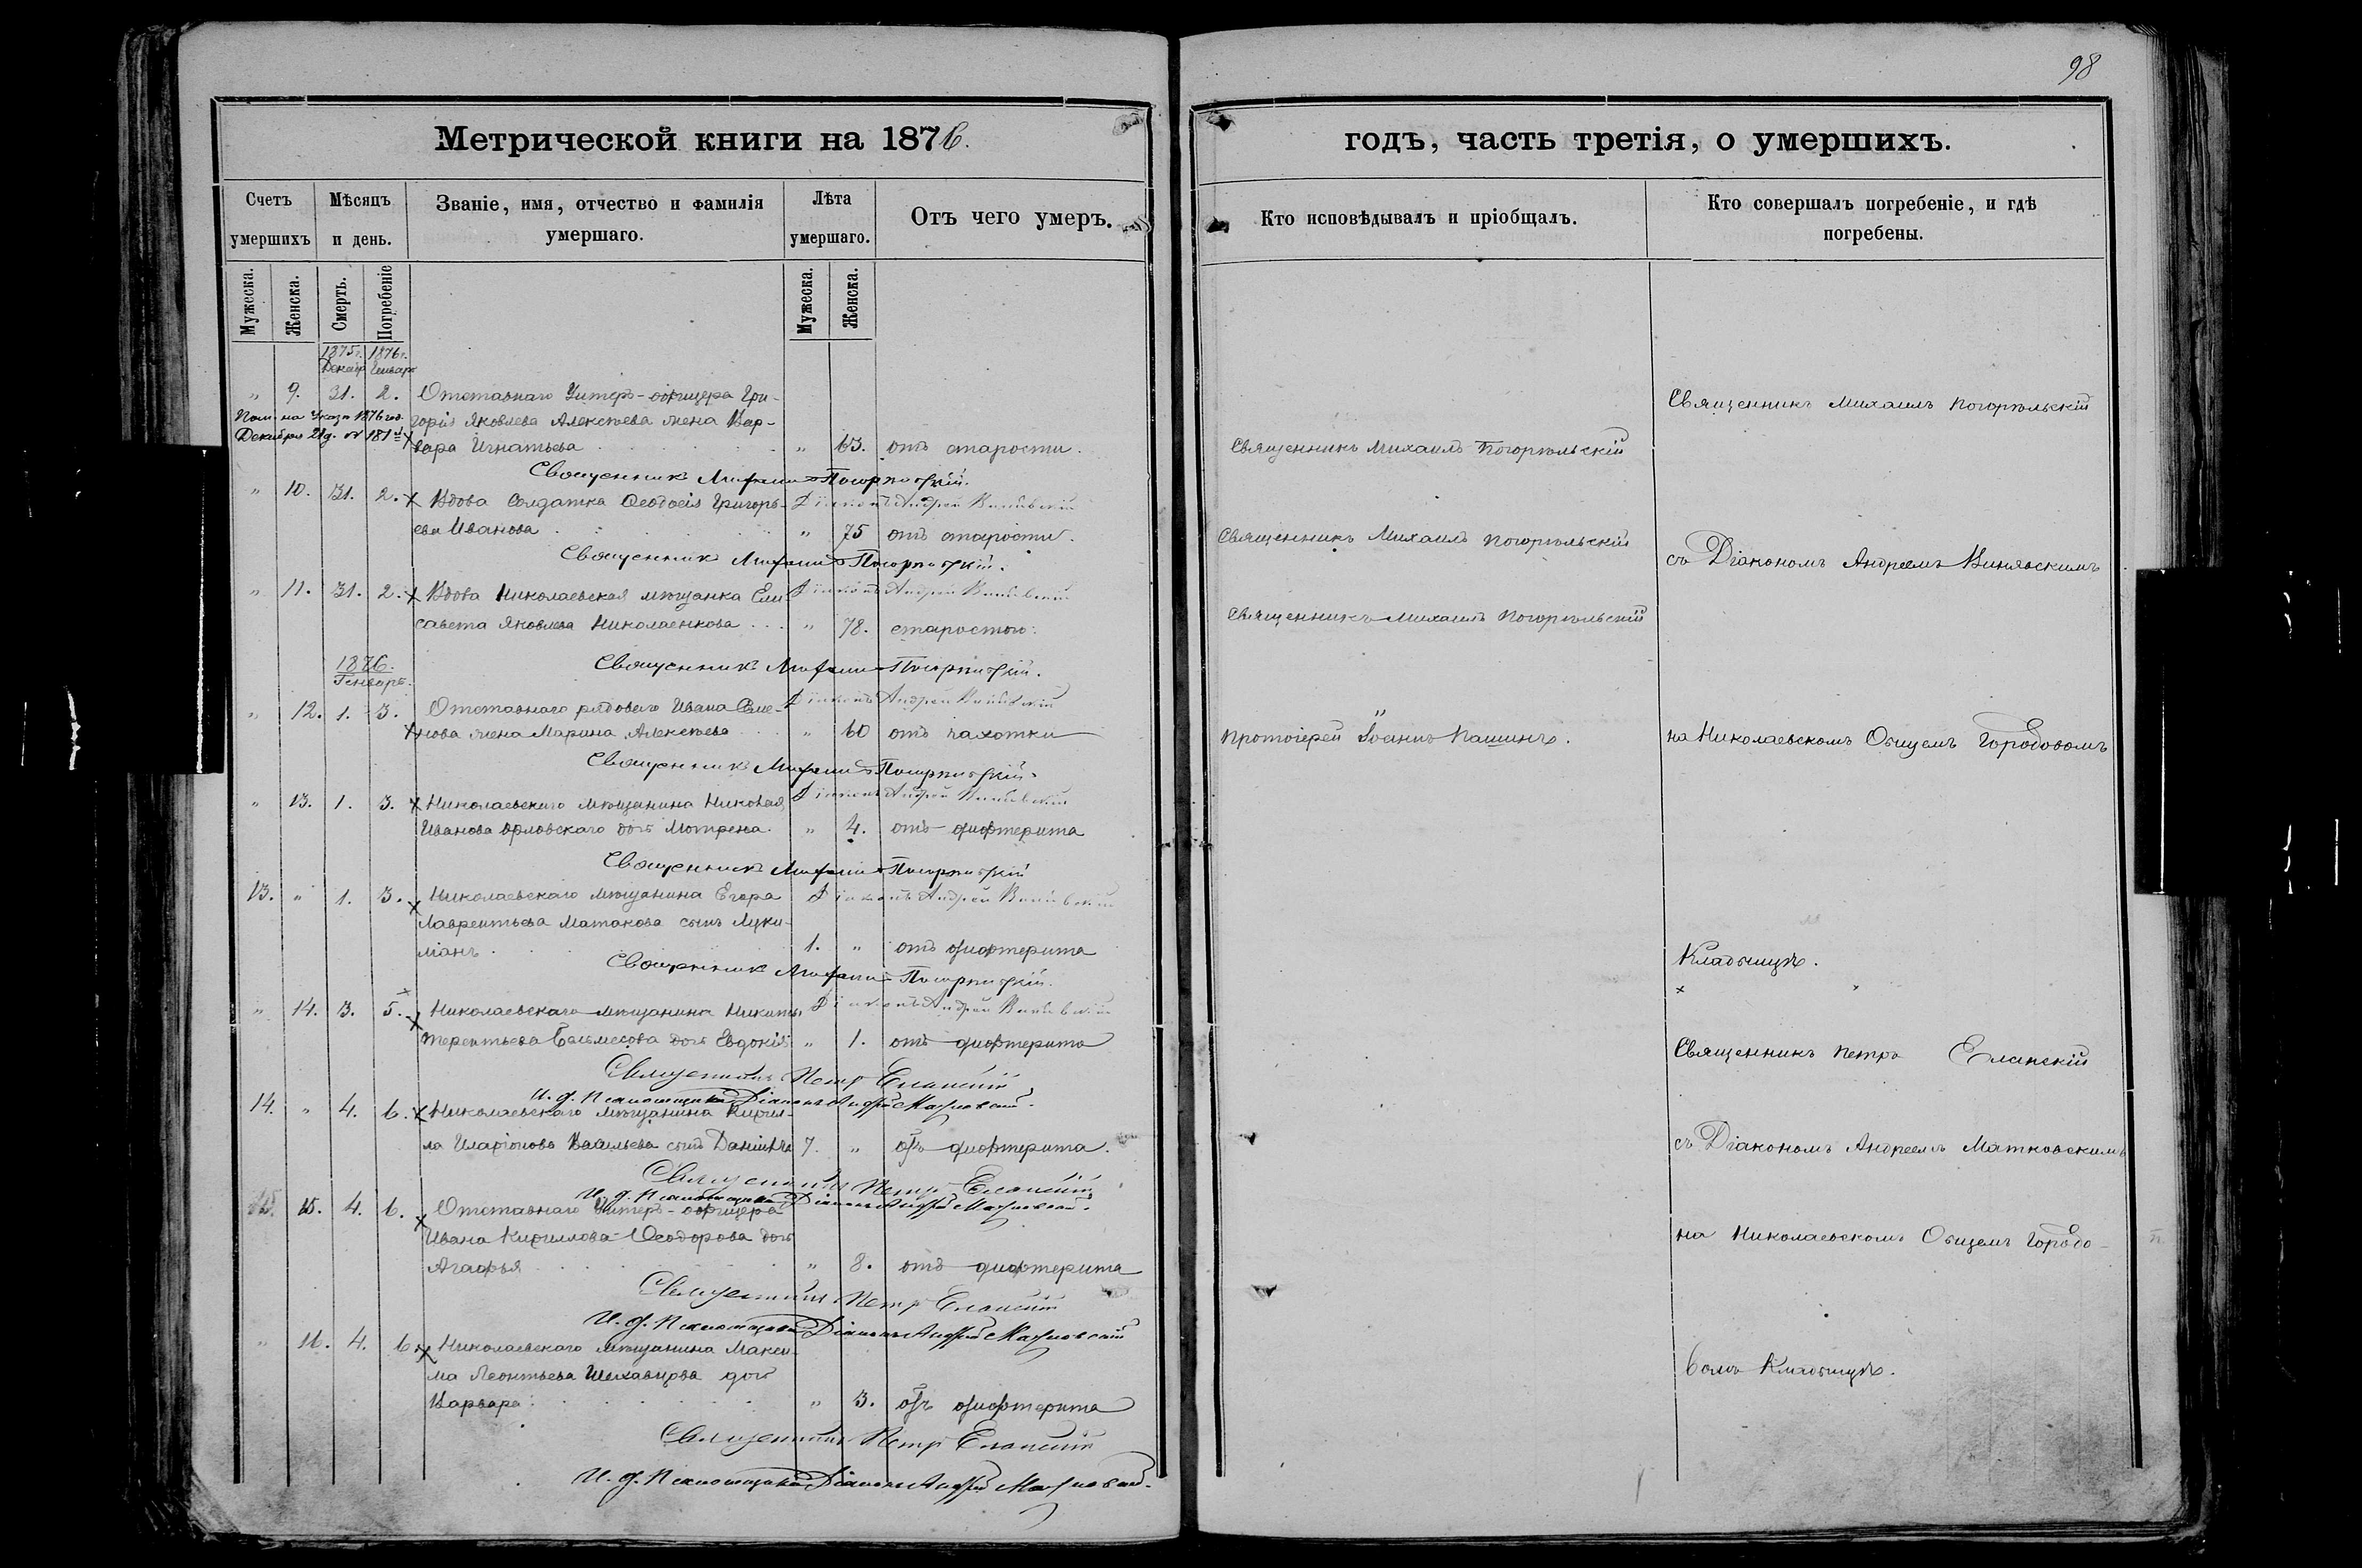 98
Метрической книги на 1876.
годъ, часть третія, о умершихъ.
Счетъ умершихъ
Мѣсяцъ и день.
Званіе, имя, отчество и фамилія умершаго.
Лѣта умершаго.
Отъ чего умеръ.
Кто исповѣдывалъ и пріобщалъ.
Кто совершалъ погребеніе, и гдѣ погребены.
Мужеска. Женска. Смерть. Погребеніе Мужеска. Женска.
1875г. 1876г.
Декабр Генваря
" 9. 31. 2. Отставнаго Унтеръ-офицера Гри-
горія Яковлева Алексѣева жена Вар-
вара Игнатьева " 63. отъ старости.
Декабря 21д. № 181
Священникъ Михаилъ Погорѣльскій
Священникъ Михаилъ Погорѣльскій
Священникъ Михаилъ Погорѣльскій.
" 10. 31. 2. Вдова Солдатка Ѳеодосія Григорь-
ева Иванова " 75 отъ старости.
Діаконъ Андрей
Священникъ Михаилъ Погорѣльскій
Священникъ Михаилъ Погорѣльскій.
съ Діакономъ Андреемъ
" 11. 31. 2. Вдова Николаевская мѣщанка Ели-
савета Яковлева Николаенкова " 78. старостью.
Діаконъ Андрей
Священникъ Михаилъ Погорѣльскій
Священникъ Михаилъ Погорѣльскій.
1876.
Генварь.
" 12. 1. 3. Отставнаго рядоваго Ивана Семе-
нова жена Марина Алексѣева " 60 отъ чахотки
Діаконъ Андрей
Протоіерей Іоаннъ Пашинъ.
на Николаевскомъ Общемъ Городовомъ
Священникъ Михаилъ Погорѣльскій.
" 13. 1. 3. Николаевскаго мѣщанина Николая
Иванова Орловскаго дочь Мотрена " 4. отъ дифтерита
Діаконъ Андрей
Священникъ Михаилъ Погорѣльскій
13. " 1. 3. Николаевскаго мѣщанина Егора
Лаврентьева Матакова сынъ Луки-
ліанъ 1. " отъ дифтерита
Діаконъ Андрей
Священникъ Михаилъ Погорѣльскій.
Кладбищѣ.
" 14. 3. 5. Николаевскаго мѣщанина Никиты
Терентьева дочь Евдокія " 1. отъ дифтерита
Діаконъ Андрей
Священникъ Петръ Еланскій
Священникъ Петръ Еланскій
И. д. Псаломщика Діаконъ Андрей Матковскій.
14. " 4. 6. Николаевскаго мѣщанина Кирил-
ла Иларіонова Васильева сынъ Даніилъ 7. " отъ дифтерита.
съ Діакономъ Андреемъ Матковскимъ
Священникъ Петръ Еланскій
И. д. Псаломщика Діаконъ Андрей Матковскій.
15. 4. 6. Отставнаго Унтеръ-офицера
Ивана Кириллова Ѳеодорова дочь
Агафья " 8. отъ дифтерита
на Николаевскомъ Общемъ Городо-
Священникъ Петръ Еланскій
И. д. Псаломщика Діаконъ Андрей Матковскій
" 16. 4. 6. Николаевскаго мѣщанина Макси-
ма Леонтьева дочь
Варвара " 3. отъ дифтерита
вомъ Кладбищѣ.
Священникъ Петръ Еланскій
И. д. Псаломщика Діаконъ Андрей Матковскій.